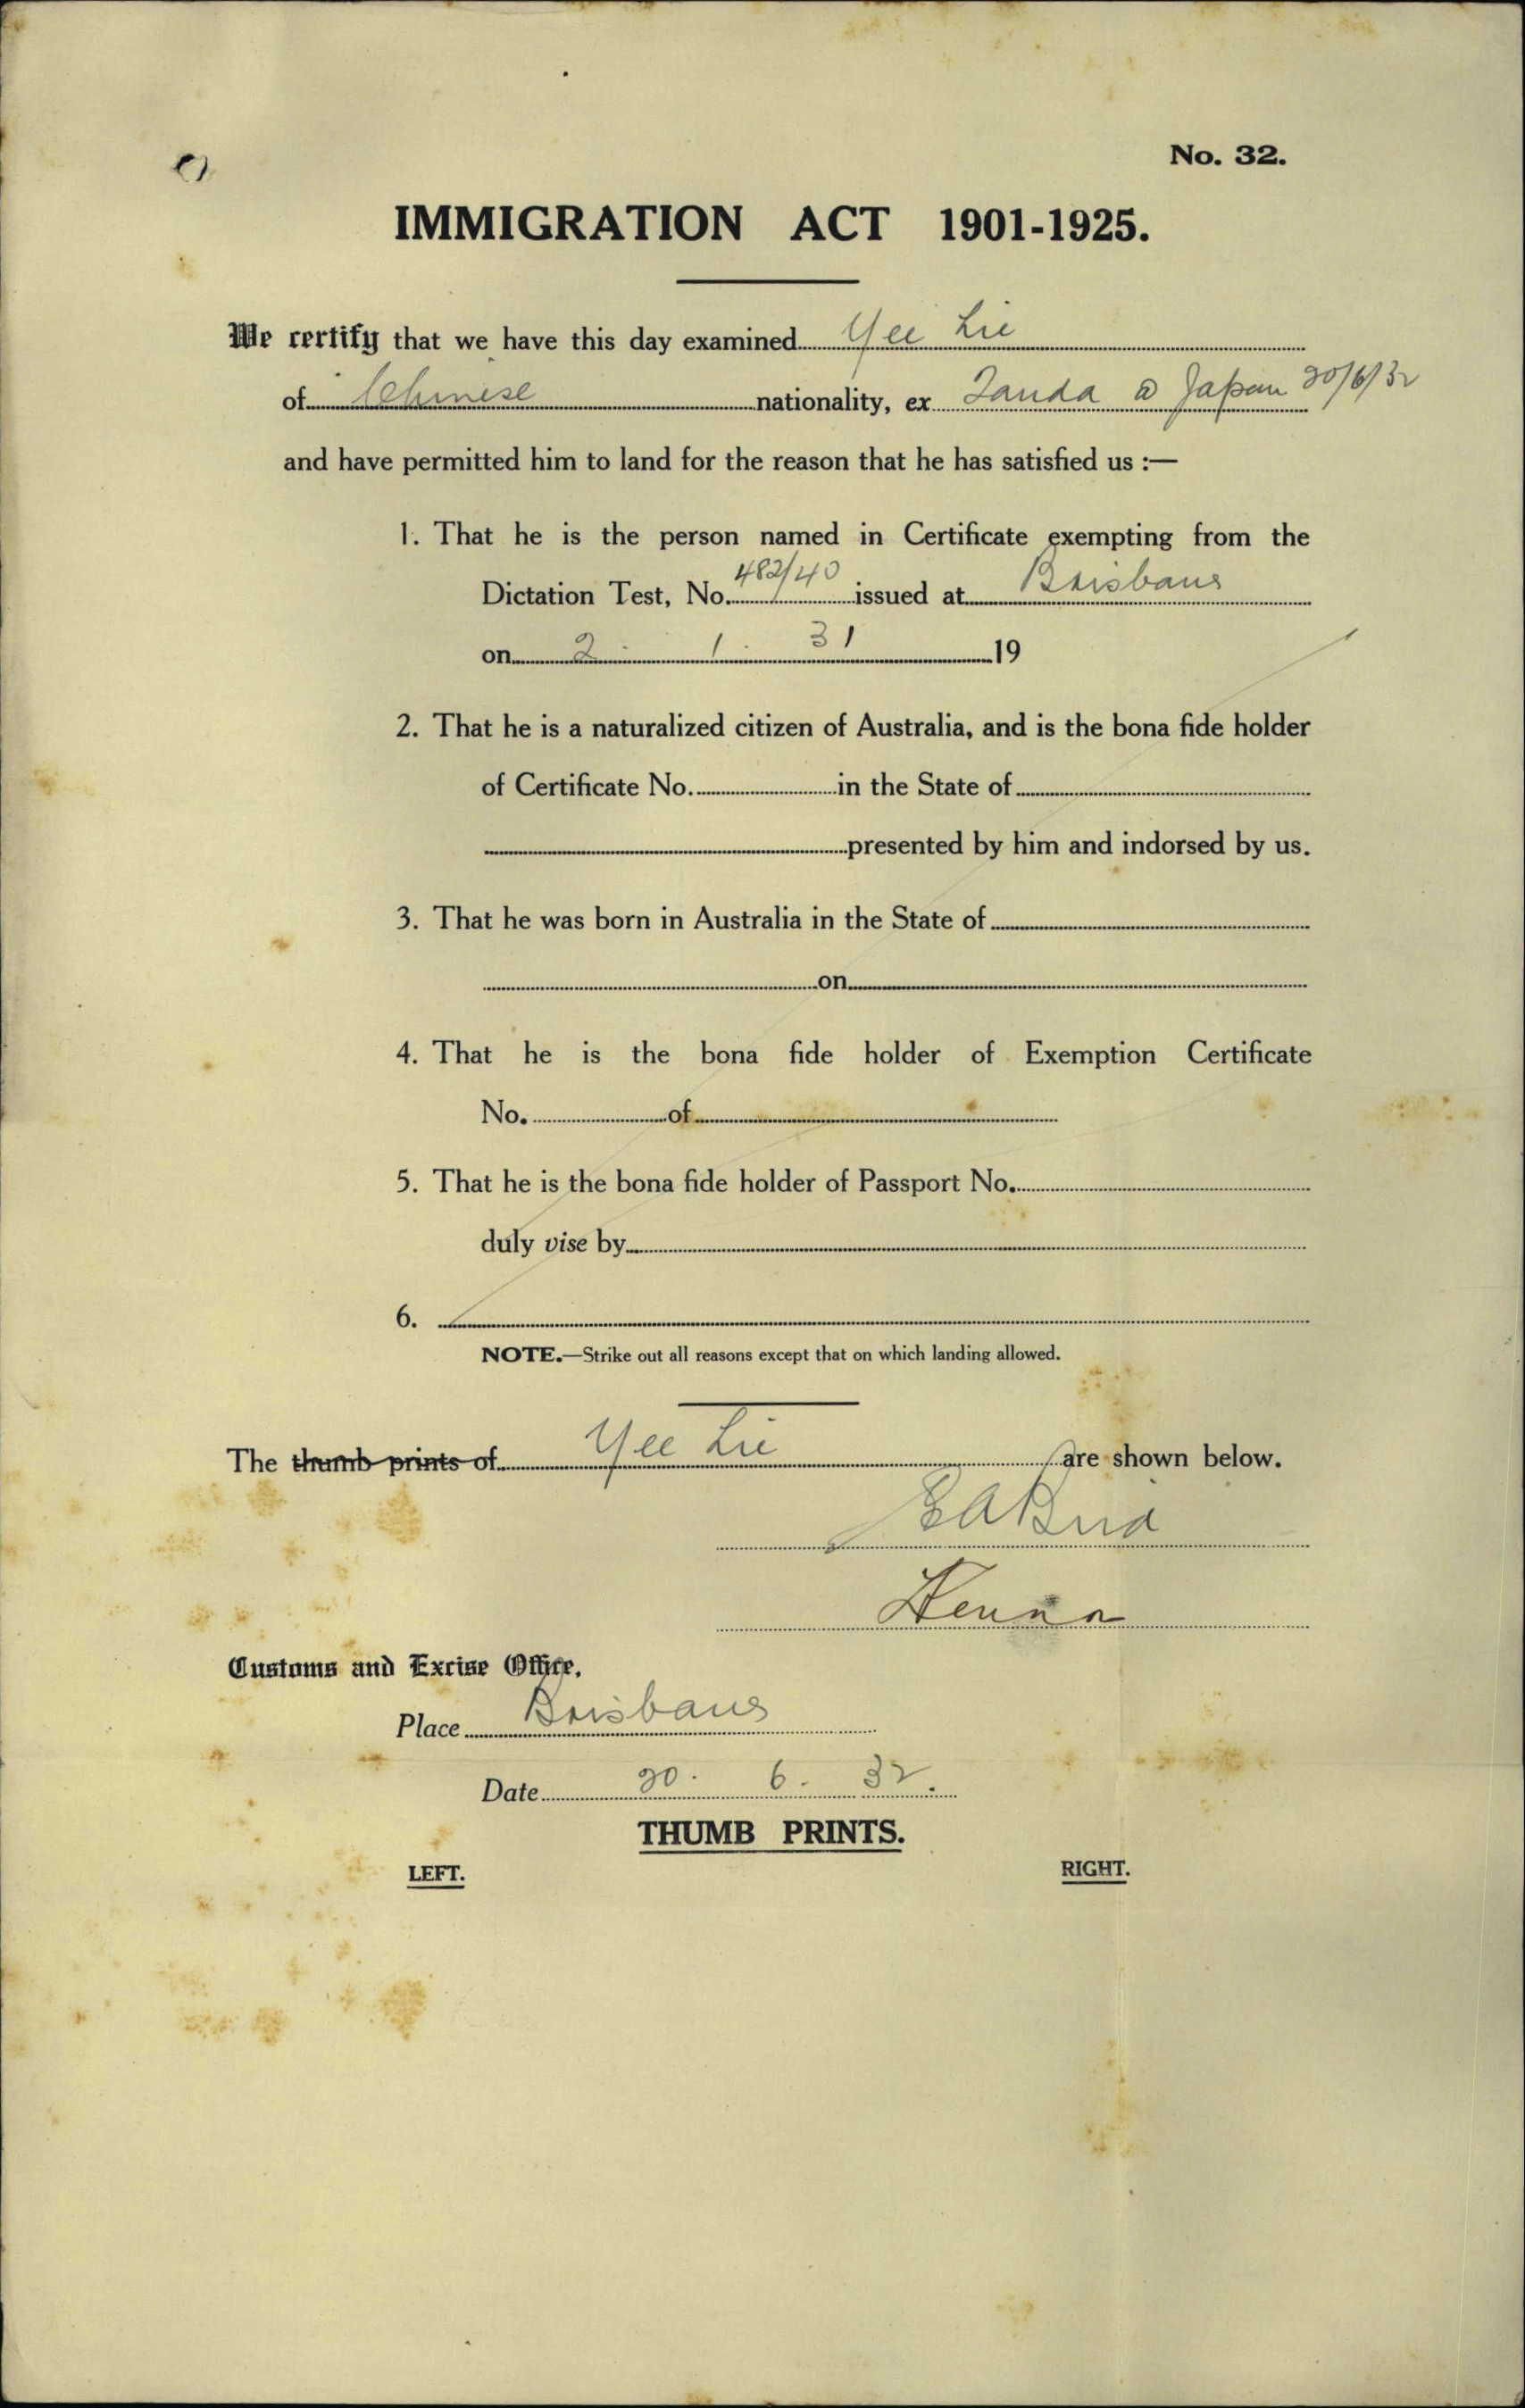 No. 32.
IMMIGRATION ACT 1901-1925.
We certify that we have this day examined Yee Lie
of Chinese nationality, ex Tanda @ Japan 30/6/32
and have permitted him to land for the reason that he has satisfied us :—
1. That he is the person named in Certificate exempting from the
Dictation Test, No. 482/40 issued at Brisbane
on 2 1 31 19
2. That he is a naturalized citizen of Australia, and is the bona fide holder
of Certificate No. in the State of
presented by him and indorsed by us.
3. That he was born in Australia in the State of
on
4. That he is the bona fide holder of Exemption Certificate
No. of
5. That he is the bona fide holder of Passport No.
duly vise by
6.
NOTE.—Strike out all reasons except that on which landing allowed.
The thumb prints of Yee Lie are shown below.
Customs and Excise Office.
Place Brisbane
Date 30. 6. 32.
THUMB PRINTS.
LEFT. RIGHT.